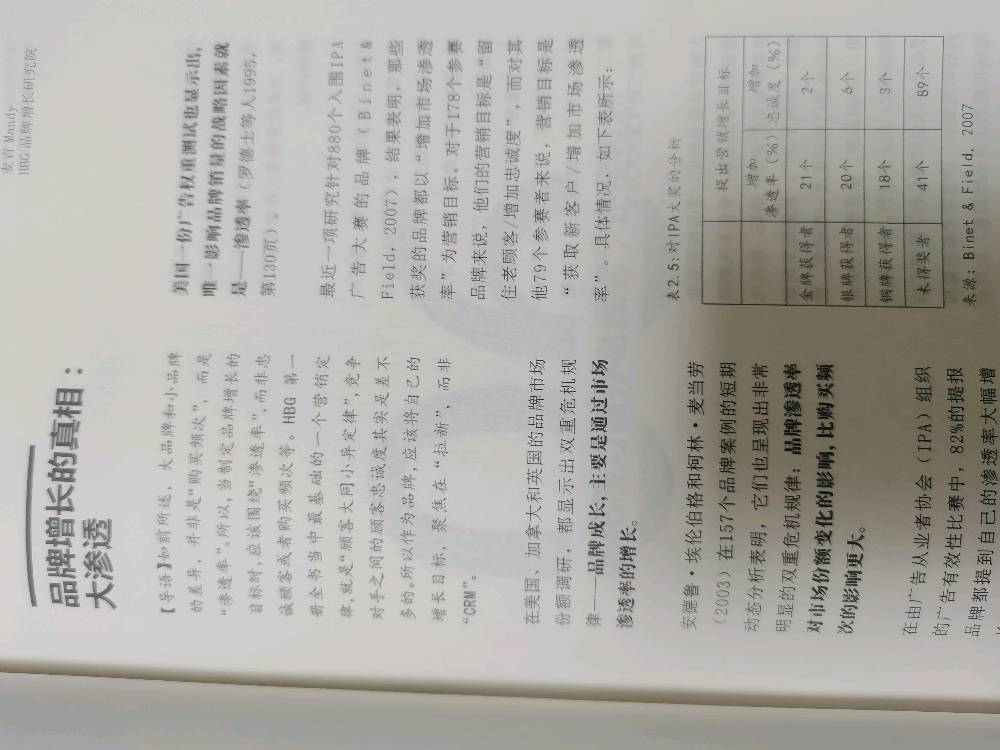 麦青Mandy
HBG品牌增长研究院
品牌增长的真相：
大渗透
【导语】如前所述，大品牌和小品牌
的差异，并非是“购买频次”，而是
“渗透率”。所以，当制定品牌增长的
目标时，应该围绕“渗透率”，而非忠
诚顾客或者购买频次等。HBG 第一
册全书当中最基础的一个营销定
律，就是“顾客大同小异定律”，竞争
对手之间的顾客忠诚度其实是差不
多的。所以作为品牌，应该将自己的
增长目标，聚焦在“拉新”，而非
“CRM”。
在美国、加拿大和英国的品牌市场
份额调研，都显示出双重危机规
律——品牌成长，主要是通过市场
渗透率的增长。
安德鲁·埃伦伯格和柯林·麦当劳
（2003）在157个品牌案例的短期
动态分析表明，它们也呈现出非常
明显的双重危机规律；品牌渗透率
对市场份额变化的影响，比购买频
次的影响更大。
在由广告从业者协会（IPA）组织
的广告有效性比赛中，82%的提报
品牌都提到自己的渗透率大幅增
美国一份广告权重测试也显示出，
唯一影响品牌销量的战略因素就
是——渗透率（罗德士等人1995，
第130页）。
最近一项研究针对880个入围IPA
广告大赛的品牌（Binet &
Field，2007），结果表明，那些
获奖的品牌都以“增加市场渗透
率”为营销目标。对于178个参赛
品牌来说，他们的营销目标是“留
住老顾客/增加忠诚度”，而对其
他79个参赛者来说，营销目标是
“获取新客户/增加市场渗透
率”。具体情况，如下表所示：
表2.5：对IPA大奖的分析
提出营销增长目标
增加 增加
渗透率（%） 忠诚度（%）
金牌获得者 21个 2个
银牌获得者 20个 6个
铜牌获得者 18个 3个
未得奖者 41个 89个
来源：Binet & Field，2007